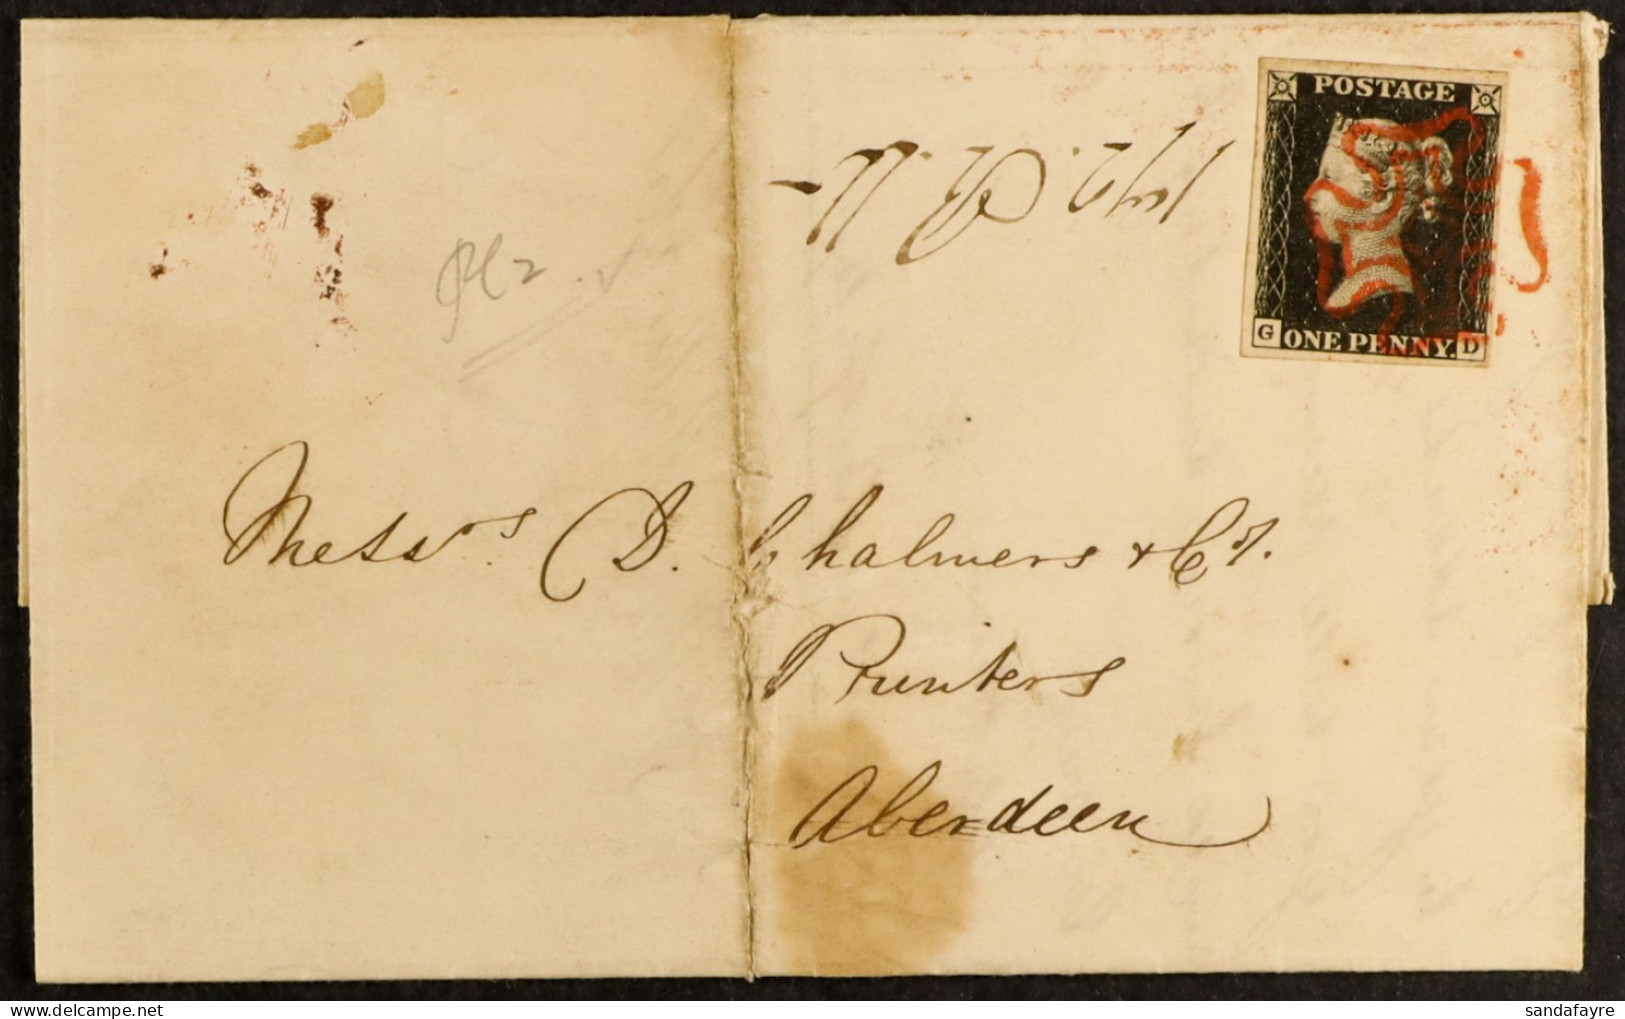 POSTAGE
G ONE PENNY. D
Pl 2
Messrs D. Chalmers & Co.
Printers
Aberdeen
sandafayre